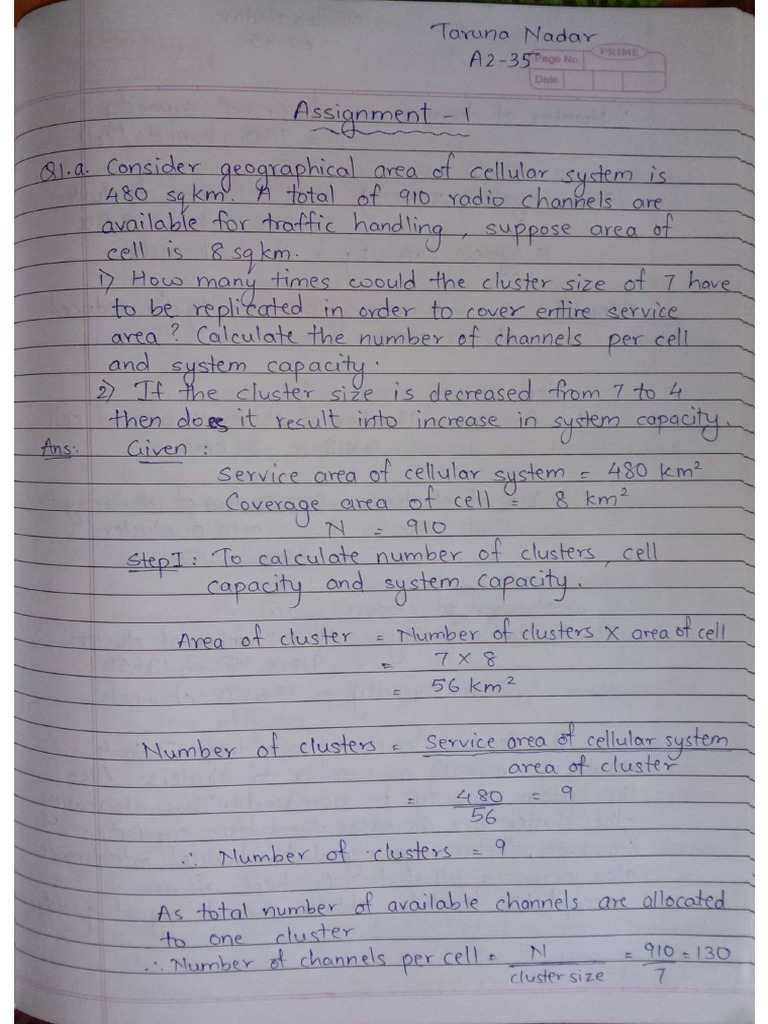 Taruna Nadar
A2-35
PRIME
Page No.
Date
Assignment - 1
Q1.a. Consider geographical area of cellular system is
480 sqkm. A total of 910 radio channels are
available for traffic handling, suppose area of
cell is 8 sqkm.
1) How many times would the cluster size of 7 have
to be replicated in order to cover entire service
area? Calculate the number of channels per cell
and system capacity.
2) If the cluster size is decreased from 7 to 4
then does it result into increase in system capacity.
Ans:- Given :
Service area of cellular system = 480 km²
Coverage area of cell = 8 km²
N = 910
Step I : To calculate number of clusters, cell
capacity and system capacity.
Area of cluster = Number of clusters X area of cell
= 7 X 8
= 56 km²
Number of clusters = Service area of cellular system
area of cluster
= 480 = 9
56
∴ Number of clusters = 9
As total number of available channels are allocated
to one cluster
∴ Number of channels per cell = N = 910 = 130
cluster size 7